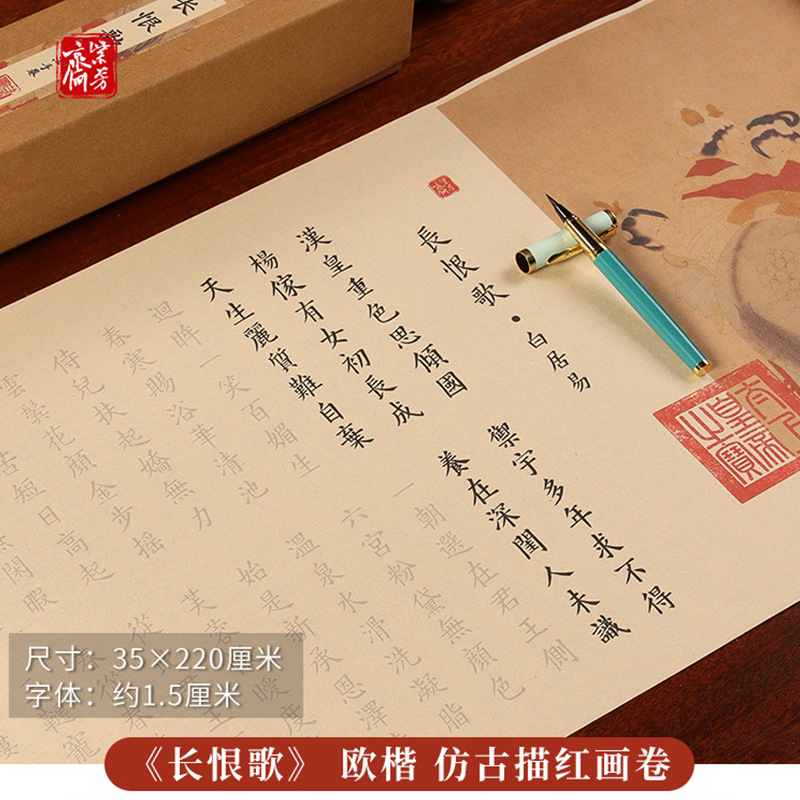 长恨歌
長恨歌·白居易
漢皇重色思傾國
禦宇多年求不得
楊傢有女初長成
養在深閨人未識
天生麗質難自棄
一朝選在君王側
迴眸一笑百媚生
六宮粉黛無顏色
春寒賜浴華清池
溫泉水滑洗凝脂
侍兒扶起嬌無力
始是新承恩澤
雲鬢花顏金步搖
芙蓉
度
苦短日高起
從
閑暇
尺寸：35×220厘米
字体：约1.5厘米
《长恨歌》 欧楷 仿古描红画卷